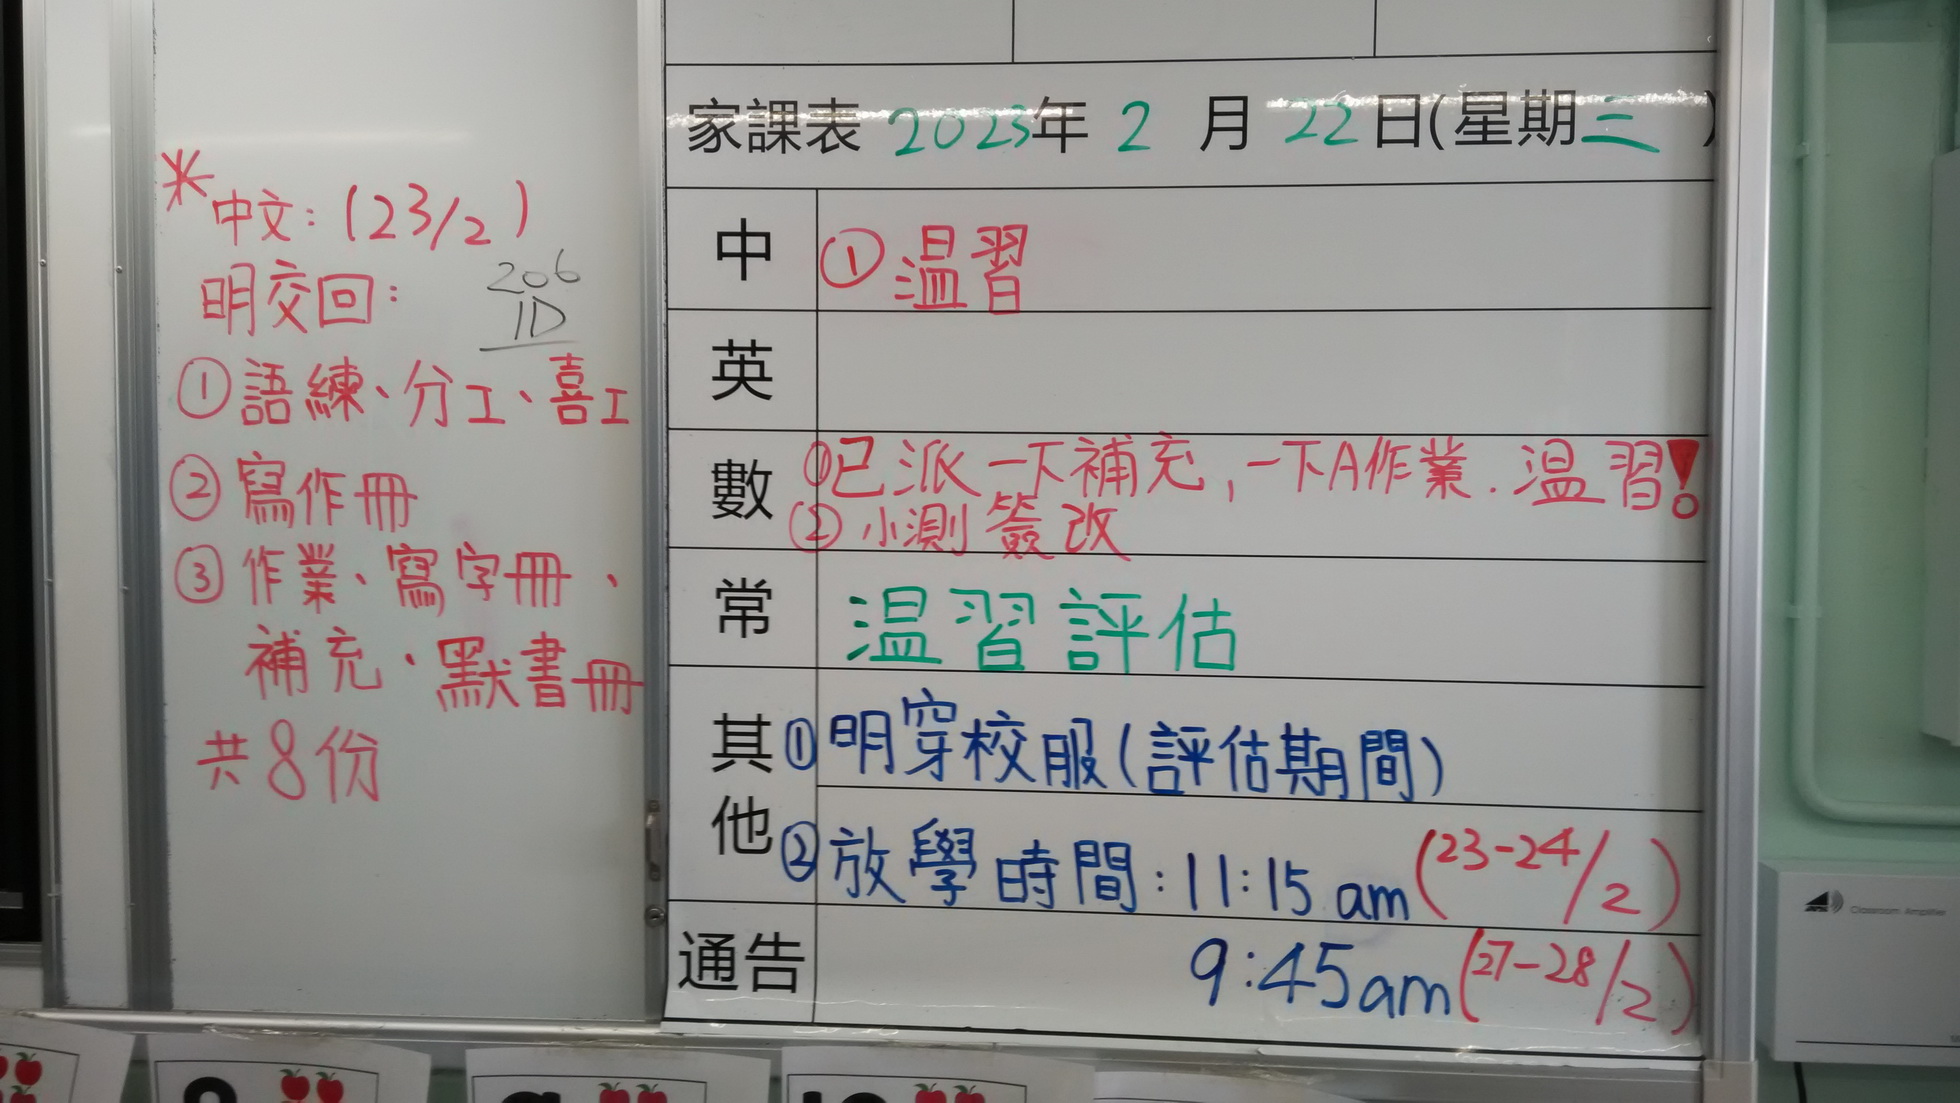 *中文:(23/2)
明交回:
206
1D
①語練、分工、喜工
②寫作冊
③作業、寫字冊、
補充、默書冊
共8份
家課表 2023年 2 月 22日(星期三 )
中 ①溫習
英
數 ①已派一下補充,一下A作業.溫習!
②小測簽改
常 溫習評估
其他 ①明穿校服(評估期間)
②放學時間:11:15 am(23-24/2)
9:45am(27-28/2)
通告
Classroom Amplifier